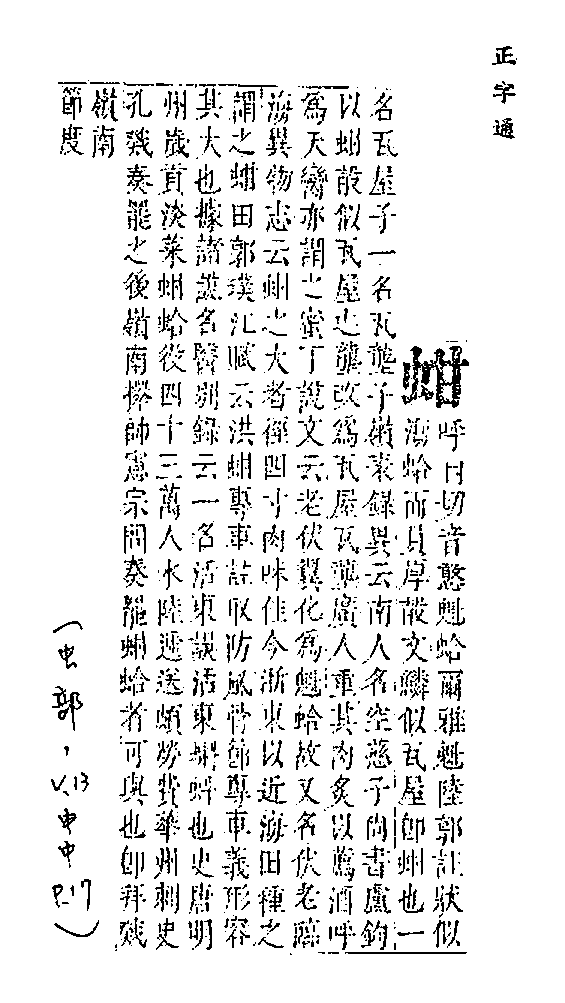 正字通
蚶
呼甘切音憨魁蛤爾雅魁陸郭註狀似
海蛤而員厚殼文鱗似瓦屋卽蚶也一
名瓦屋子一名瓦壟子嶺表錄異云南人名空慈子尚書盧鈞
以蚶殼似瓦屋之壟改爲瓦屋瓦壟廣人重其肉炙以薦酒呼
爲天臠亦謂之蜜丁說文云老伏翼化爲魁蛤故又名伏老臨
海異物志云蚶之大者徑四寸肉味佳今浙東以近海田種之
謂之蚶田郭璞江賦云洪蚶專車註取防風骨節專車義形容
其大也據諸說名醫別錄云一名活東誤活東蝌蚪也史唐明
州歲貢淡菜蚶蛤役四十三萬人水陸遞送煩勞費華州刺史
孔戣奏罷之後嶺南擇帥憲宗問奏罷蚶蛤者可與也卽拜戣
嶺南
節度
(虫部,V.13申中P.17)